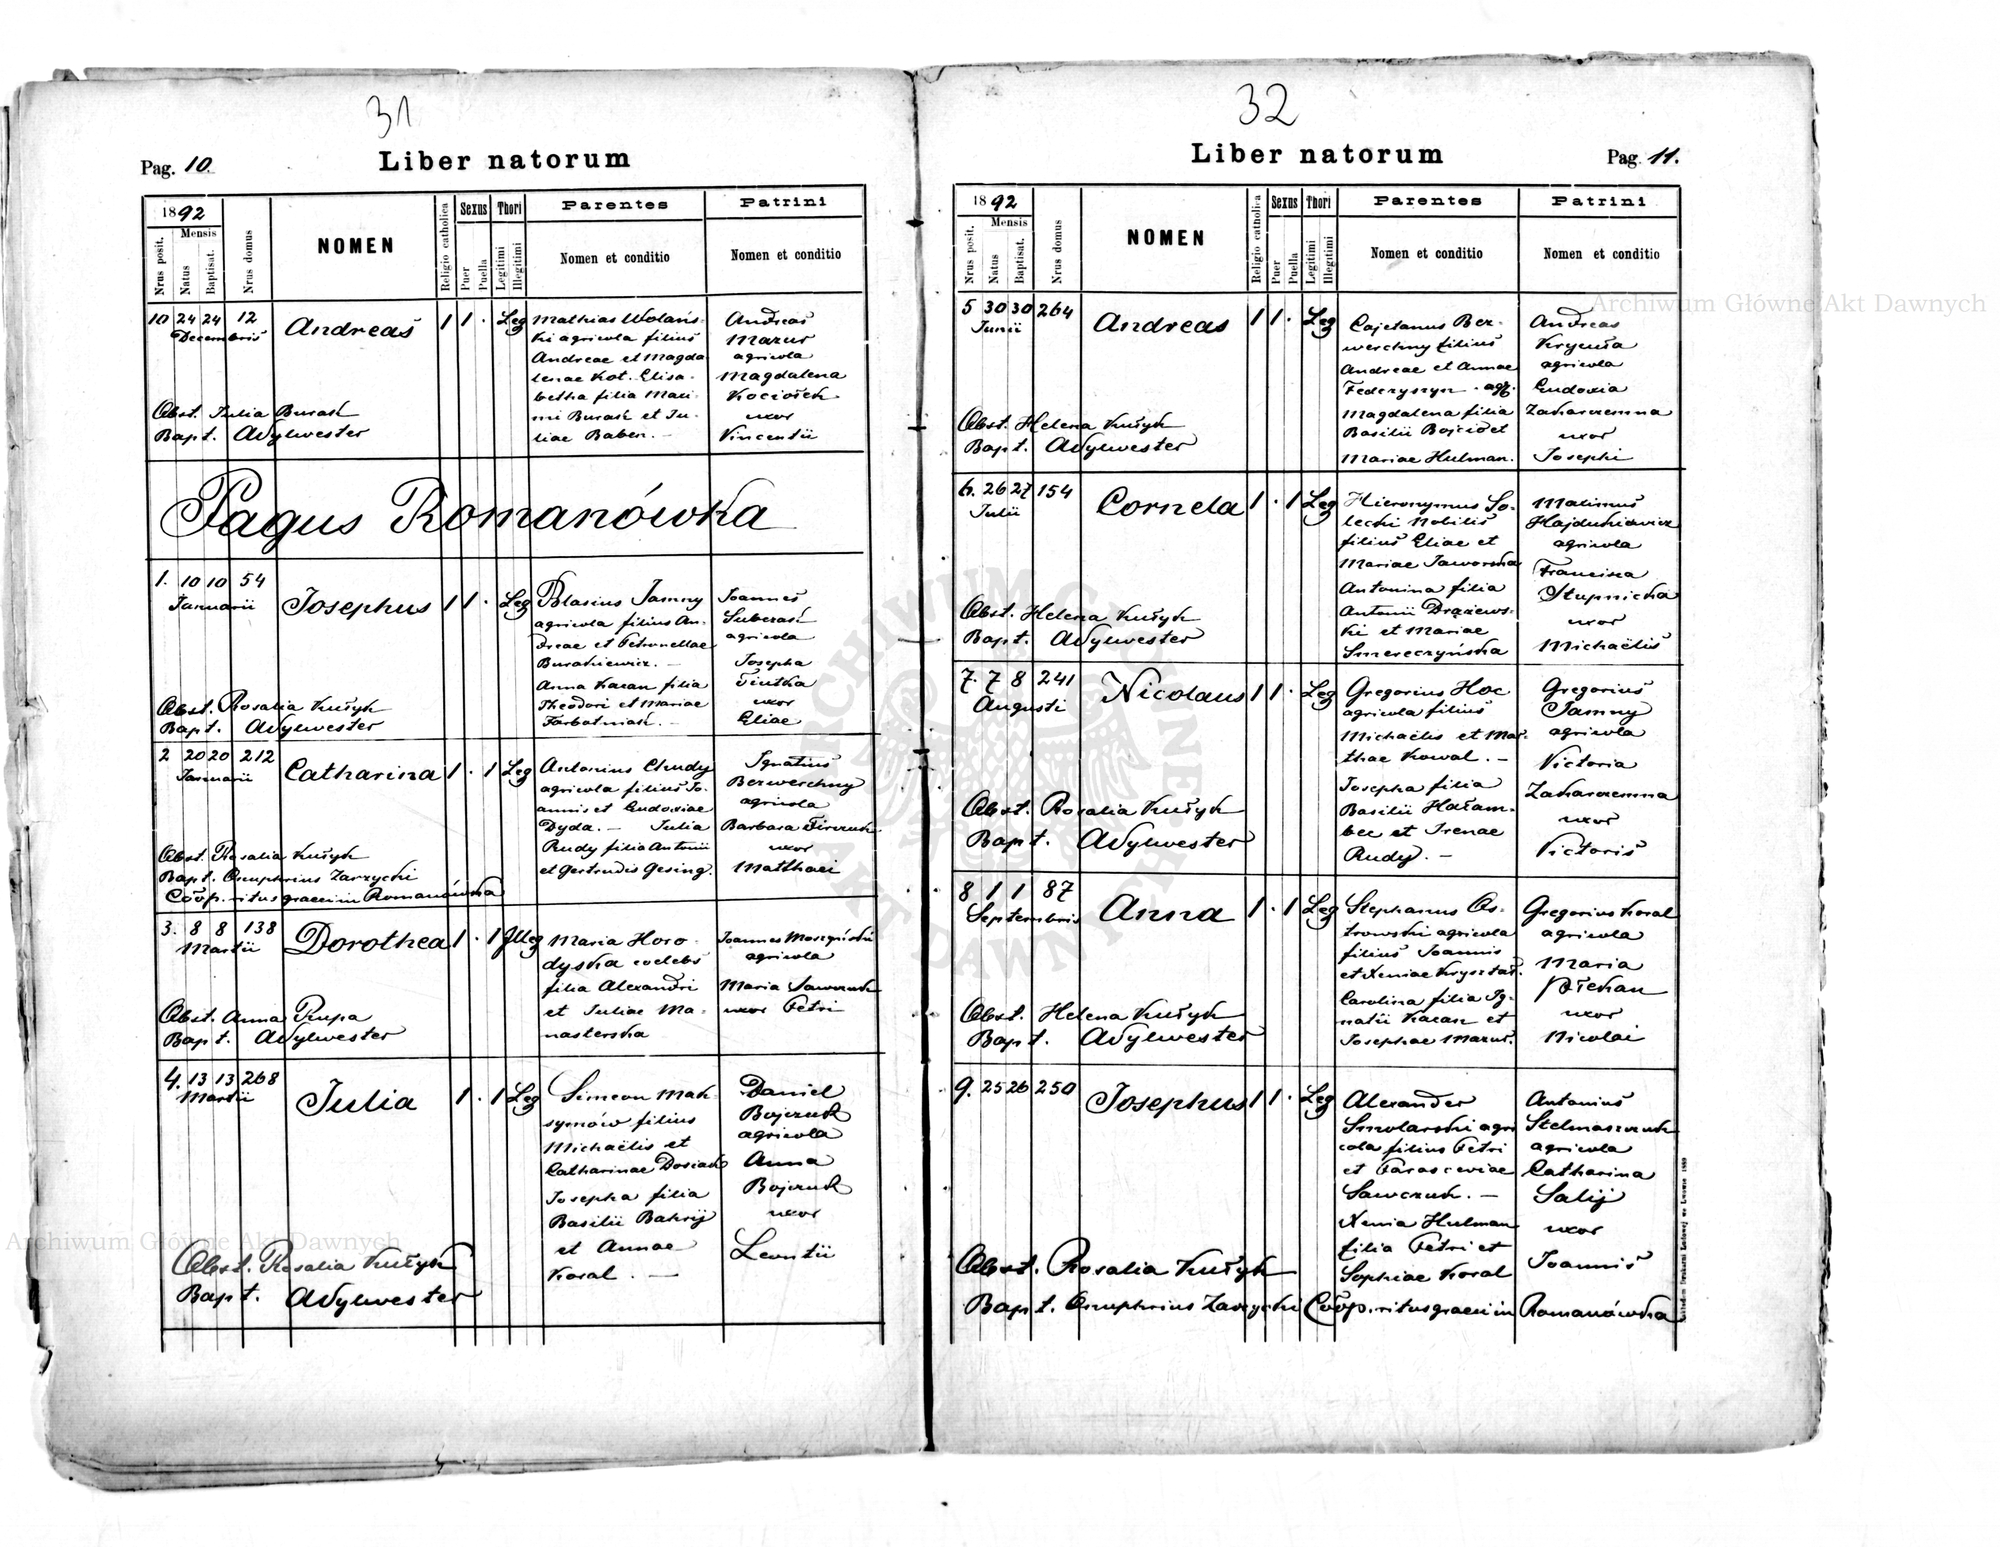 31
Pag. 10.
Liber natorum
1892
Nrus posit.
Mensis
Natus
Baptisat.
Nrus domus
NOMEN
Religio catholica
Sexus
Puer
Puella
Thori
Legitimi
Illegitimi
Parentes
Nomen et conditio
Patrini
Nomen et conditio
10 24 24 12
Decembris
Andreas
1 1 · Leg
Mathias Wolańs-
ki agricola filius
Andreae et Magda
lenae Kot. Elisa-
betha filia Maxi-
mi Burak et Ju-
liae Baben. —
Andreas
Mazur
agricola
Magdalena
Kociołek
uxor
Vincentii
Obst. Julia Burak
Bapt. ASylwester
Pagus Romanówka
1. 10 10 54
Januarii
Josephus
1 1 · Leg
Blasius Jamny
agricola filius An-
dreae et Petronellae
Burakiewicz. —
Anna Kazan filia
Theodori et Mariae
Farbotniak. —
Joannes
Suberak
agricola
Josepha
uxor
Eliae
Obst. Rosalia Kułyk
Bapt. ASylwester
2 20 20 212
Januarii
Catharina
1 · 1 Leg
Antonius Chudy
agricola filius Jo-
annis et Eudoxiae
Dyda. — Julia
Rudy filia Antonii
et Gertrudis Gesing.
Ignatius
Bezwerchny
agricola
Barbara
uxor
Matthaei
Obst. Rosalia Kułyk
Bapt. Onuphrius Zarzycki
Coop. ritus graeci in Romanówka
3. 8 8 138
Martii
Dorothea
1 · 1 Illeg
Maria Horo-
dyska coelebs
filia Alexandri
et Juliae Ma-
nasterska
Joannes Moszyński
agricola
Maria Sawczuk
uxor Petri
Obst. Anna Rupa
Bapt. ASylwester
4. 13 13 268
Martii
Julia
1 · 1 Leg
Simeon Mak-
symów filius
Michaëlis et
Catharinae Dosiak
Josepha filia
Basilii Bakrij
et Annae
Koral. —
Daniel
Bojczuk
agricola
Anna
Bojczuk
uxor
Leontii
Obst. Rosalia Kułyk
Bapt. ASylwester
32
Liber natorum
Pag. 11.
1892
Nrus posit.
Mensis
Natus
Baptisat.
Nrus domus
NOMEN
Religio catholica
Sexus
Puer
Puella
Thori
Legitimi
Illegitimi
Parentes
Nomen et conditio
Patrini
Nomen et conditio
5 30 30 264
Junii
Andreas
1 1 · Leg
Cajetanus Bez-
werchny filius
Andreae et Annae
Fedczyszyn - agr.
Magdalena filia
Basilii Bojcio et
Mariae Hulman.
Andreas
agricola
Eudoxia
Zacharczemna
uxor
Josephi
Obst. Helena Kułyk
Bapt. ASylwester
6. 26 27 154
Julii
Cornela
1 · 1 Leg
Hieronymus So-
lecki nobilis
filius Eliae et
Mariae Jaworska
Antonina filia
Antonii Drążews-
ki et Mariae
Smereczyńska
Matinus
Hajdukiewicz
agricola
Francisca
Stupnicka
uxor
Michaëlis
Obst. Helena Kułyk
Bapt. ASylwester
7. 7 8 241
Augusti
Nicolaus
1 1 · Leg
Gregorius Hoc
agricola filius
Michaëlis et Mar-
thae Kowal. —
Josepha filia
Basilii Hałam-
bec et Irenae
Rudy. —
Gregorius
Jamny
agricola
Victoria
Zacharczemna
uxor
Victoris
Obst. Rosalia Kułyk
Bapt. ASylwester
8 1 1 87
Septembris
Anna
1 · 1 Leg
Stephanus Os-
trowski agricola
filius Joannis
et Xeniae Kryształ.
Carolina filia Ig-
natii Kazan et
Josephae Mazur.
Gregorius Koral
agricola
Maria
uxor
Nicolai
Obst. Helena Kułyk
Bapt. ASylwester
9. 25 26 250
Josephus
1 1 · Leg
Alexander
Smolarski agri
cola filius Petri
et Parasceviae
Sawczuk. —
Xenia Hulman
filia Petri et
Sophiae Koral
Antonius
Stelmaszczuk
agricola
Catharina
Salij
uxor
Joannis
Obst. Rosalia Kułyk
Bapt. Onuphrius Zarzycki Coop. ritus graeci in Romanówka
Archiwum Główne Akt Dawnych
Archiwum Główne Akt Dawnych
ARCHIWUM GŁÓWNE AKT DAWNYCH